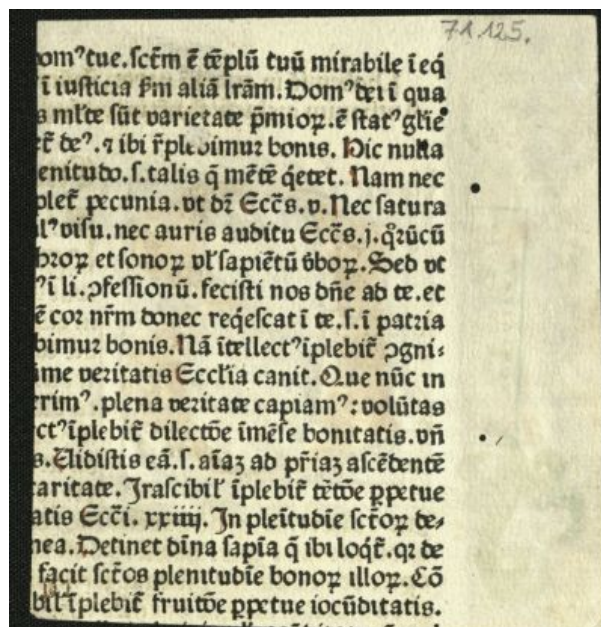 71.125.
om⁹ tue. sct̄m ē tēplū tuū mirabile ī eq̇
ī iusticia ẜm aliā lr̄am. Dom⁹ dei ī qua
s ml̄te sūt varietate p̄mioꝝ. ē stat⁹ gl̄ie
et̄ de⁹. ⁊ ibi r̄plebimur bonis. Hic nulla
enitudo. s. talis q̄ mētē q̇etet. Nam nec
plet̄ pecunia. vt dꝛ̄ Ecc̄s. v. Nec satura
l⁹ visu. nec auris auditu Ecc̄s. j. q̇rūcū
broꝝ et sonoꝝ vl̕ sapiētū v̕boꝝ. Sed vt
⁹ ī li. ꝯfessionū. fecisti nos dn̄e ad te. et
ē cor nr̄m donec req̇escat ī te. s. ī patria
bimur bonis. Nā ītellect⁹ īplebit̄ ꝯgni⸗
ime veritatis Eccl̄ia canit. Que nūc in
erim⁹. plena veritate capiam⁹: volūtas
ct⁹ īplebit̄ dilectōe īmēse bonitatis. vn̄
s. Elidistis eā. s. aīaꝫ ad pr̄iaꝫ ascēdentē
caritate. Irascibil̕ īplebit̄ tētōe ꝑpetue
atis Ecc̄i. xxiiij. In pleītudīe sctōꝝ de⸗
nea. Detinet dīna sapīa q̄ ibi loq̇t̄. qꝛ de
facit sct̄os plenitudīe bonoꝝ illoꝝ. Cō
bil̕ īplebit̄ fruitōe ꝑpetue iocūditatis.